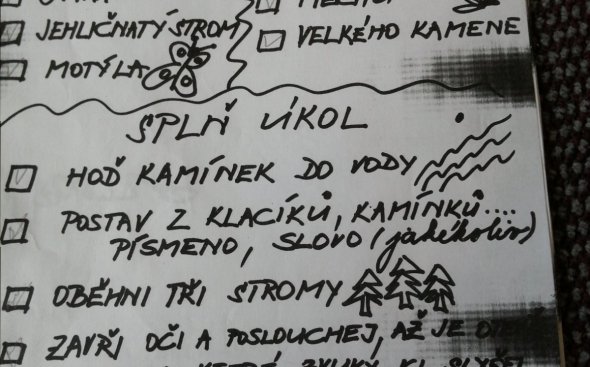 JEHLIČNATÝ STROM
MOTÝLA
VELKÉHO KAMENE
SPLŇ ÚKOL
HOĎ KAMÍNEK DO VODY
POSTAV Z KLACÍKŮ, KAMÍNKŮ....
PÍSMENO, SLOVO (jakékoliv)
OBĚHNI TŘI STROMY
ZAVŘI OČI A POSLOUCHEJ, AŽ JE